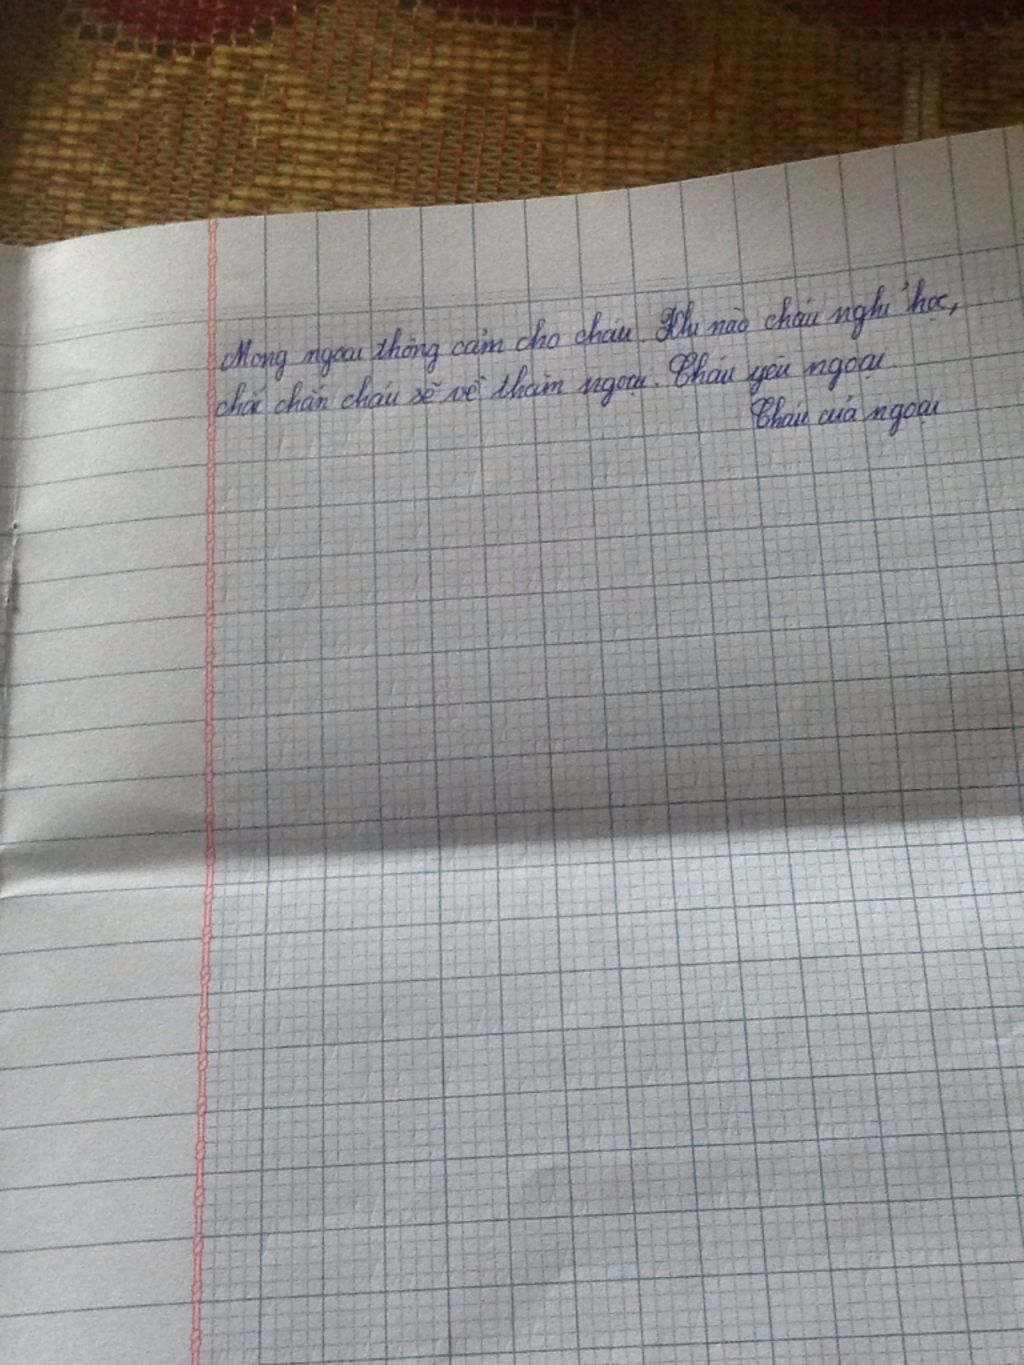 Mong ngoại thông cảm cho cháu. Khi nào cháu nghỉ học,
chắc chắn cháu sẽ về thăm ngoại. Cháu yêu ngoại.
Cháu của ngoại